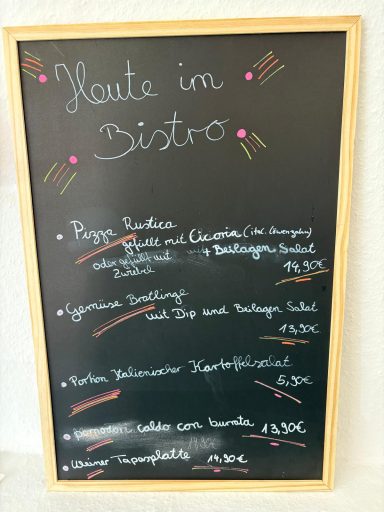 Heute im
Bistro
• Pizza Rustica
gefüllt mit Cicoria (ital. Löwenzahn)
oder gefüllt mit + Beilagen Salat
Zwiebel
14,90€
• Gemüse Bratlinge
mit Dip und Beilagen Salat
13,90€
• Portion Italienischer Kartoffelsalat
5,90€
• pomodori caldo con burrata 13,90€
• Weiner Tapasplatte 14,90€